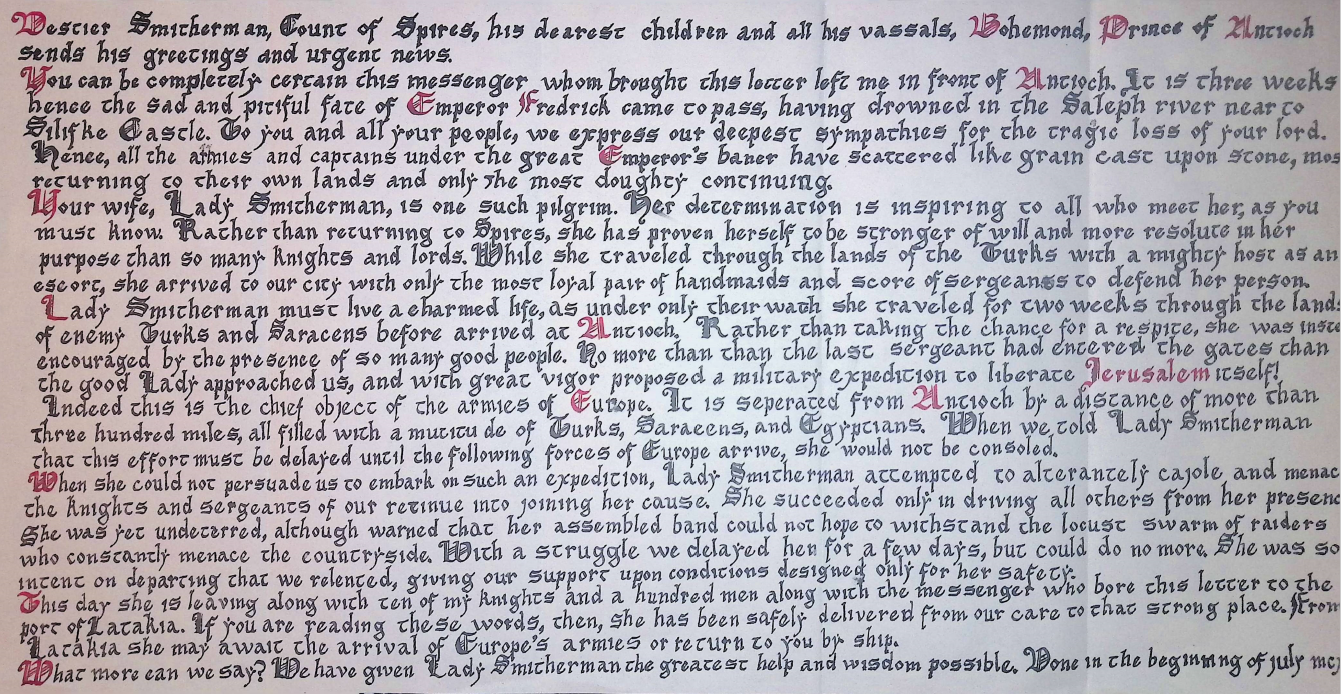 Destier Smitherman, Count of Spires, his dearest children and all his vassals, Bohemond, Prince of Antioch
sends his greetings and urgent news.
You can be completely certain this messenger whom brought this letter left me in front of Antioch. It is three weeks
hence the sad and pitiful fate of Emperor Fredrick came to pass, having drowned in the Saleph river near to
Silifke Castle. To you and all your people, we express our deepest sympathies for the tragic loss of your lord.
Hence, all the armies and captains under the great Emperor's baner have scattered like grain cast upon stone, mos
returning to their own lands and only the most doughty continuing.
Your wife, Lady Smitherman, is one such pilgrim. Her determination is inspiring to all who meet her, as you
must know. Rather than returning to Spires, she has proven herself to be stronger of will and more resolute in her
purpose than so many knights and lords. While she traveled through the lands of the Turks with a mighty host as an
escort, she arrived to our city with only the most loyal pair of handmaids and score of sergeants to defend her person.
Lady Smitherman must live a charmed life, as under only their wath she traveled for two weeks through the land
of enemy Turks and Saracens before arrived at Antioch. Rather than taking the chance for a respite, she was inste
encouraged by the presence of so many good people. No more than than the last sergeant had entered the gates than
the good Lady approached us, and with great vigor proposed a military expedition to liberate Jerusalem itself!
Indeed this is the chief object of the armies of Europe. It is seperated from Antioch by a distance of more than
three hundred miles, all filled with a mutitude of Turks, Saracens, and Egyptians. When we told Lady Smitherman
that this effort must be delayed until the following forces of Europe arrive, she would not be consoled.
When she could not persuade us to embark on such an expedition, Lady Smitherman attempted to alterantely cajole and menac
the knights and sergeants of our retinue into joining her cause. She succeeded only in driving all others from her presenc
She was yet undeterred, although warned that her assembled band could not hope to withstand the locust swarm of raiders
who constantly menace the countryside. With a struggle we delayed her for a few days, but could do no more. She was so
intent on departing that we relented, giving our support upon conditions designed only for her safety.
This day she is leaving along with ten of my knights and a hundred men along with the messenger who bore this letter to the
port of Latakia. If you are reading these words, then, she has been safely delivered from our care to that strong place. From
Latakia she may await the arrival of Europe's armies or return to you by ship.
What more can we say? We have given Lady Smitherman the greatest help and wisdom possible. Done in the beginning of july mc